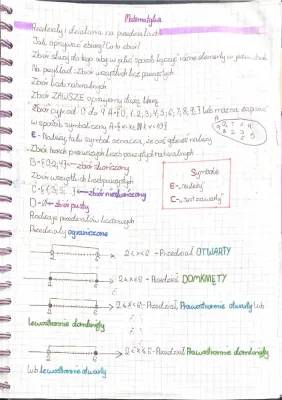 Matematyka
Przedziały i działania na przedziałach
Jak opisywać zbiory? Co to zbiór?
Zbiór służy do tego aby w jakiś sposób łączyć różne elementy w jeden zbiór
Na przykład: Zbiór wszystkich liczb parzystych
Zbiór liczb naturalnych
Zbiór ZAWSZE opisujemy dużą literą
Zbiór cyfr od 0 do 9 A={0,1,2,3,4,5,6,7,8,9} lub można zapisać
w sposób symboliczny A={x: x∈N ∧ x<10}
E - Należy, taki symbol oznacza, że coś gdzieś należy
Zbiór trzech pierwszych liczb parzystych naturalnych
B={0,2,4} ← zbiór skończony
Zbiór wszystkich liczb parzystych
← zbiór nieskończony
D=Ø ← zbiór pusty
Symbole
E - "należy"
C - "zawarty"
Rodzaje przedziałów liczbowych
Przedziały ograniczone
2<x<8 - Przedział OTWARTY
Przedział DOMKNIĘTY
Przedział, Prawostronnie otwarty lub
Lewostronnie domknięty
Przedział Prawostronnie domknięty
lub Lewostronnie otwarty